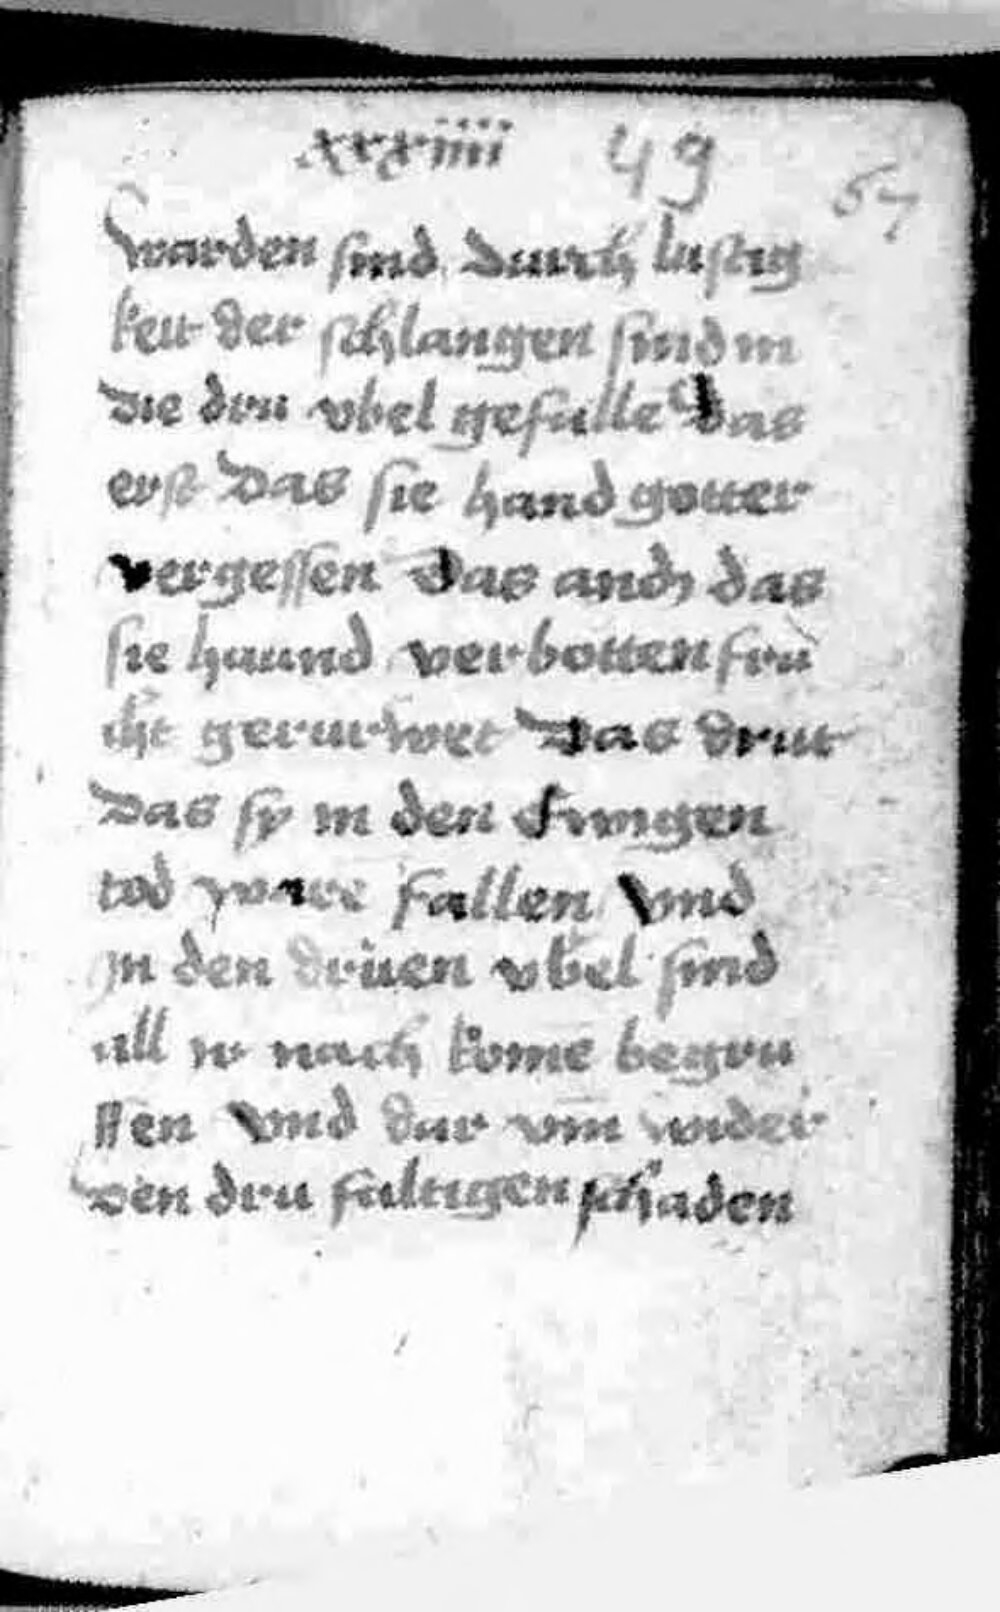 xxxiiii 49 67
warden sind durch lustig
keit der schlangen sind in
die dru vbel gefalle das
erst Das sie hand gottes
vergessen Das andʒ das
sie haund verbotten fru
cht Das dritt
Das sy in den Ewigen
tod fallen Vnd
In den drüen vbel sind
all ir nach kome begru
ffen Vnd dar vm wider
den dru faltigen schaden